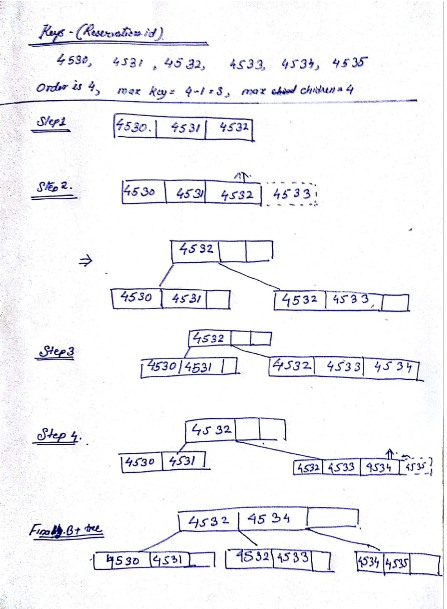 Keys - (Reservation id)
4530, 4531, 4532, 4533, 4534, 4535
Order is 4, max key = 4-1=3, max children = 4
Step1
4530. 4531 4532
Step 2.
4530 4531 4532 4533
⇒
4532
4530 4531 4532 4533
Step3
4532
4530 4531 4532 4533 4534
Step 4.
4532
4530 4531 4532 4533 4534 4535
Finally B+ tree
4532 4534
4530 4531 4532 4533 4534 4535